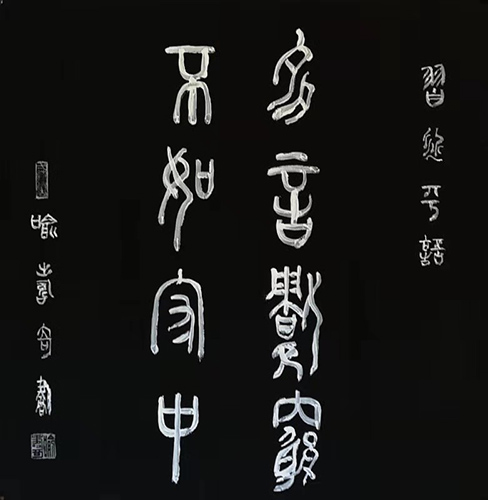 習近平語
多言數窮
不如守中
喻孝奇書